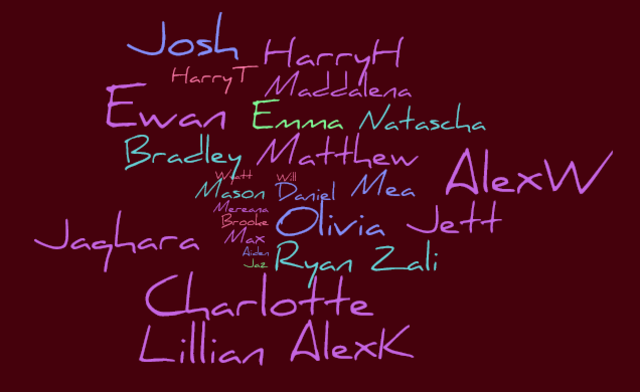 Josh HarryH
HarryT Maddalena
Ewan Emma Natascha
Bradley Matthew
Wyatt Will AlexW
Mason Daniel Mea
Mereana
Brooke Olivia Jett
Jaghara Max
Aiden
Jaz Ryan Zali
Charlotte
Lillian AlexK